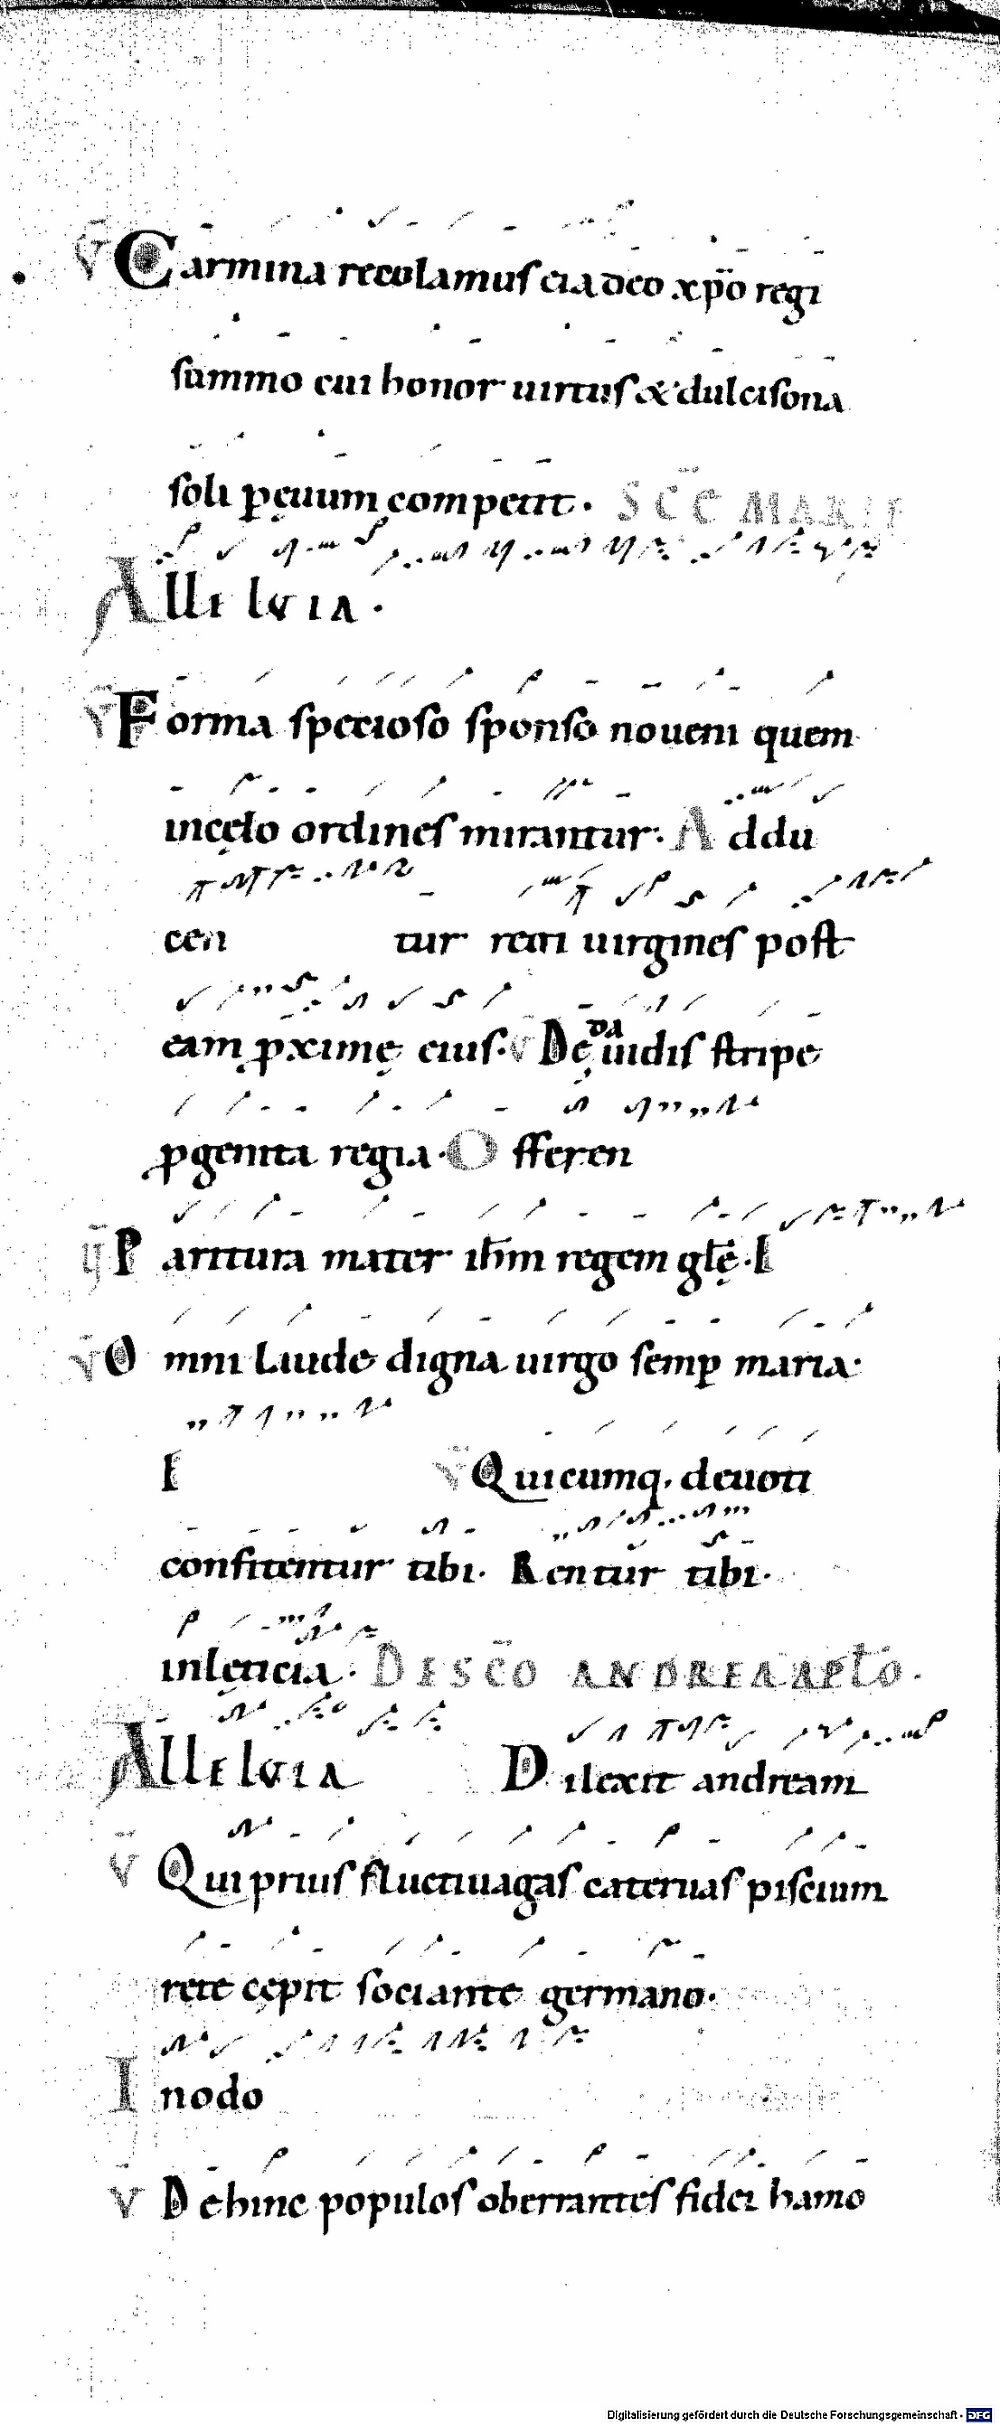 V̄ Carmina recolamus eia deo xp̄o regi
summo cui honor uirtus & dulcisona
soli p̄ ęuum competit. SCĒ MARIE
ALLELVIA.
V̄ Forma specioso sponso noueni quem
incęlo ordines mirantur. Addu
cen tur regi uirgines post
eam p̄ximę eius. V Dę dauidis stirpe
p̄genita regia. Offeren
V̄ Paritura mater ih̄m regem glę̄. I
V̄ Omni laude digna uirgo semp̄ maria.
I V̄ Quicumq. deuoti
confitentur tibi. R entur tibi.
inlęticia. DE SCŌ ANDREA APL̄O.
ALLELVIA Dilexit andream
V̄ Qui prius fluctiuagas cateruas piscium
rete cępit sociante germano.
Inodo
V̄ Dehinc populos oberrantes fidei hamo
Digitalisierung gefördert durch die Deutsche Forschungsgemeinschaft - DFG